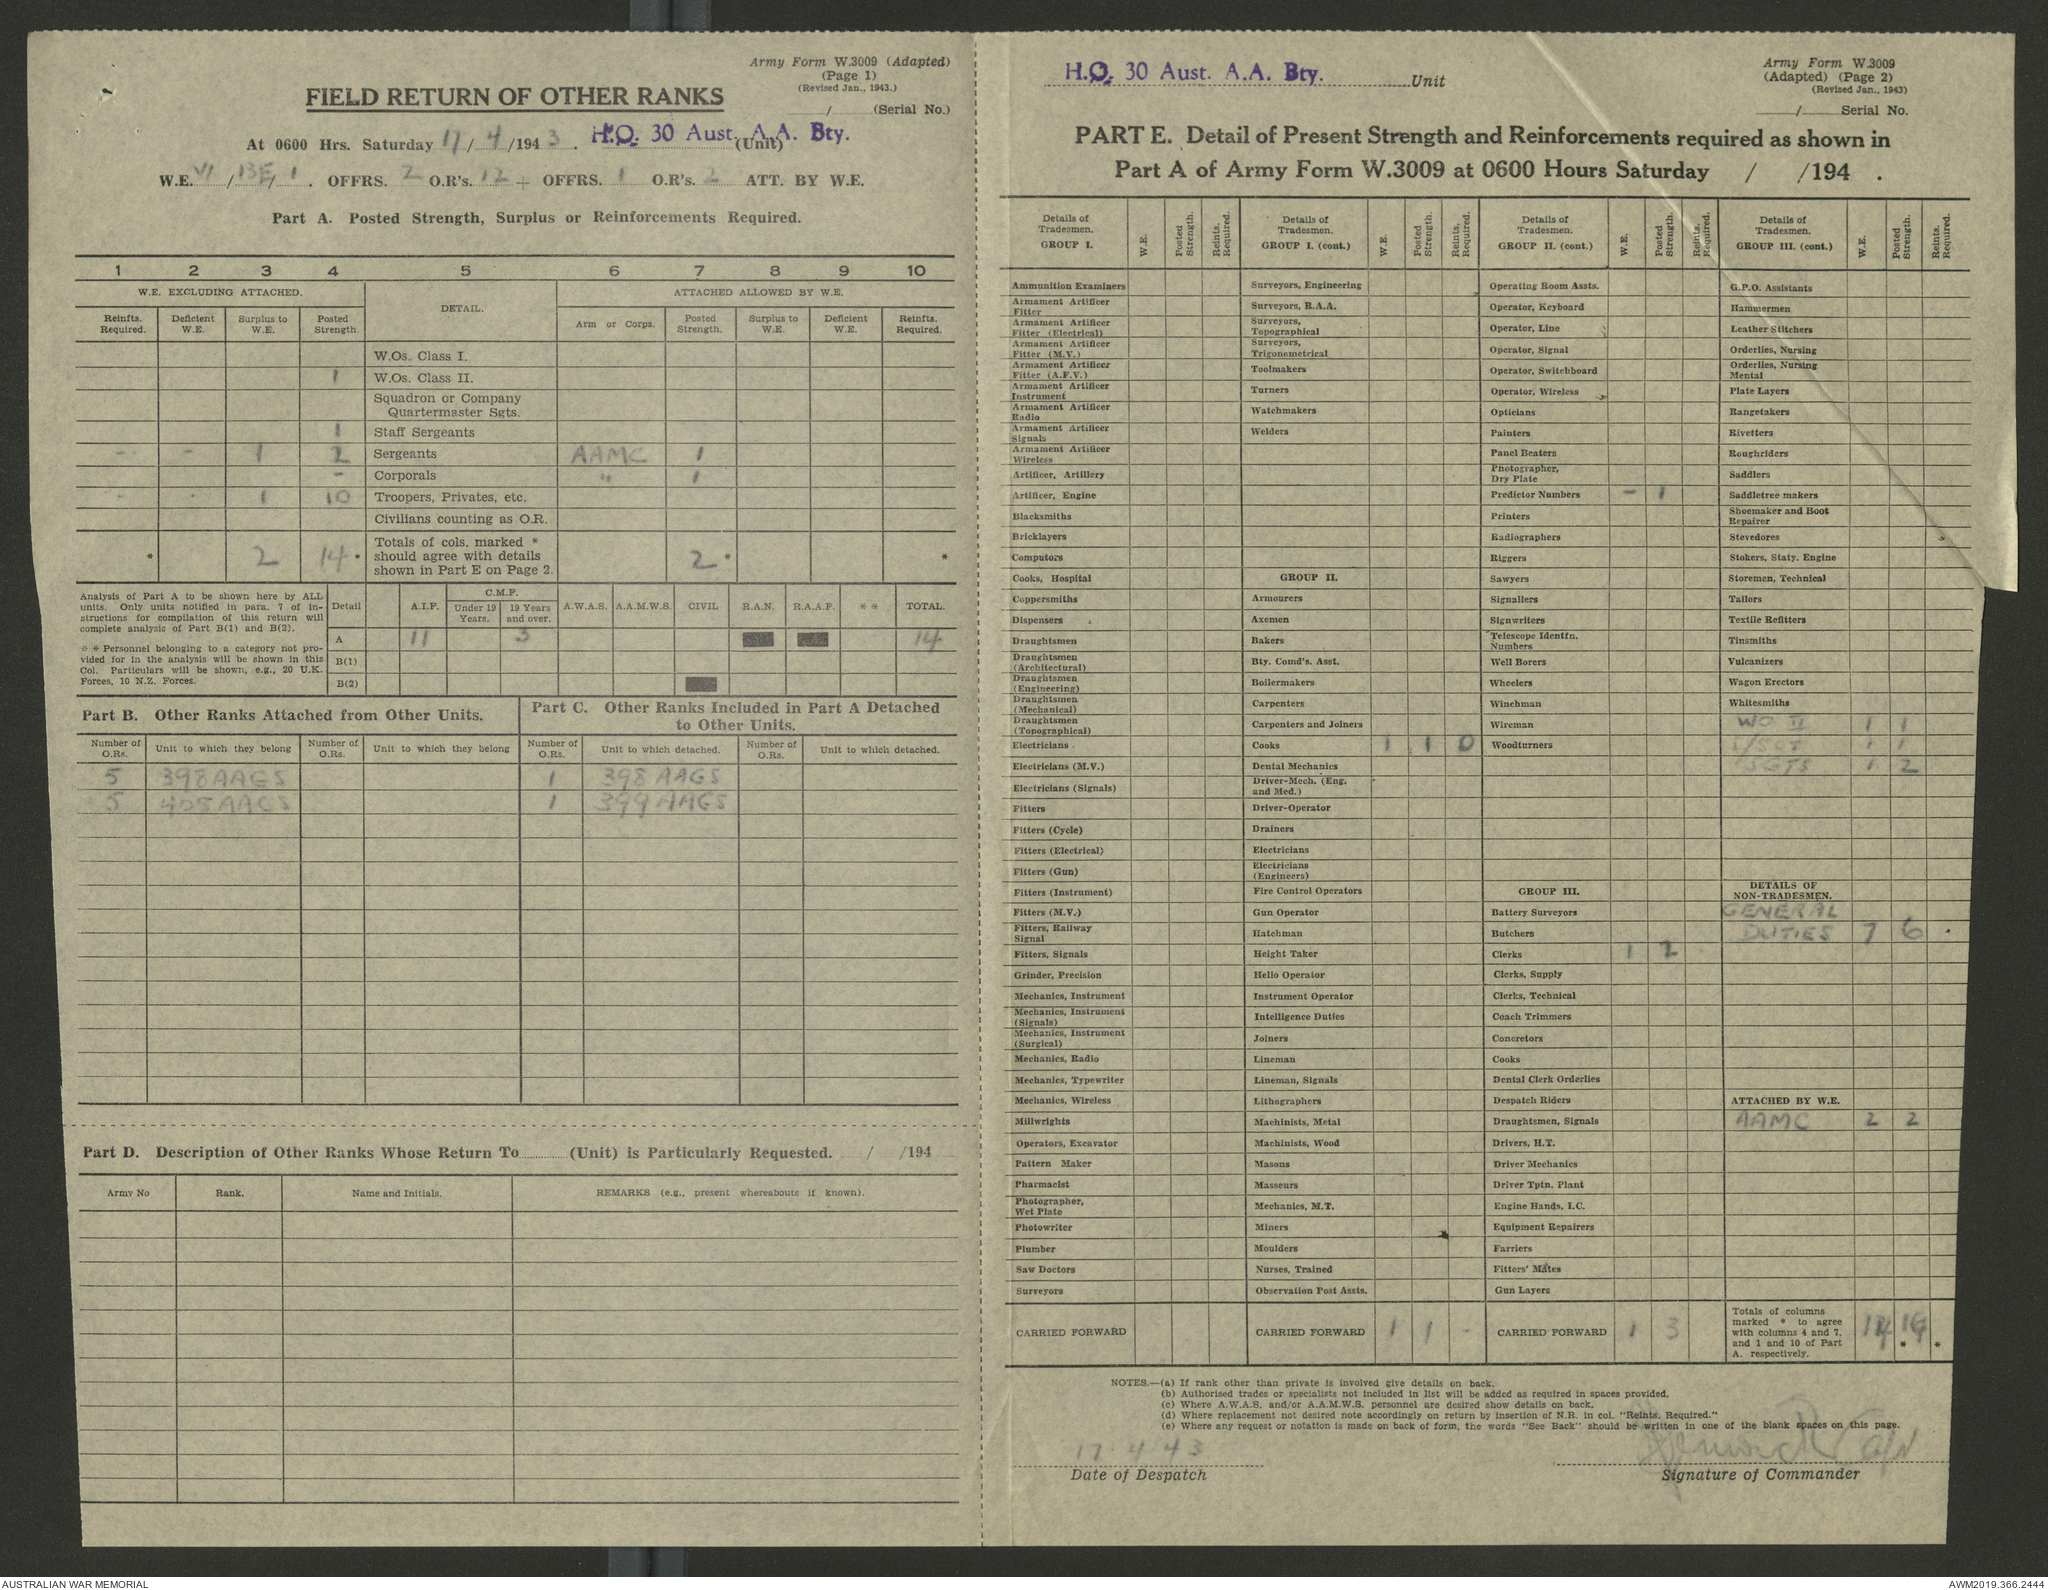 Army Form W.3009 (Adapted)
(Page 1)
(Revised Jan., 1943.)
FIELD RETURN OF OTHER RANKS
/ (Serial No.)
At 0600 Hrs. Saturday 17/4/1943. H.Q. 30 Aust. A.A. Bty. (Unit)
W.E. VI/13E/1. OFFRS. 2 O.R's. 12 + OFFRS. 1 O.R's. 2 ATT. BY W.E.
Part A. Posted Strength, Surplus or Reinforcements Required.
1 2 3 4 5 6 7 8 9 10
W.E. EXCLUDING ATTACHED. DETAIL. ATTACHED ALLOWED BY W.E.
Reinfts. Required. Deficient W.E. Surplus to W.E. Posted Strength. Arm or Corps. Posted Strength. Surplus to W.E. Deficient W.E. Reinfts. Required.
W.Os. Class I.
1 W.Os. Class II.
Squadron or Company
Quartermaster Sgts.
1 Staff Sergeants
- - 1 2 Sergeants AAMC 1
- Corporals " 1
- - 1 10 Troopers, Privates, etc.
Civilians counting as O.R.
* 2 14 * Totals of cols. marked * should agree with details shown in Part E on Page 2. 2 * *
Analysis of Part A to be shown here by ALL
units. Only units notified in para. 7 of in-
structions for compilation of this return will
complete analysis of Part B(1) and B(2).
* * Personnel belonging to a category not pro-
vided for in the analysis will be shown in this
Col. Particulars will be shown, e.g., 20 U.K.
Forces, 10 N.Z. Forces.
Detail A.I.F. C.M.F. Under 19 Years. 19 Years and over. A.W.A.S. A.A.M.W.S. CIVIL R.A.N. R.A.A.F. * * TOTAL.
A 11 3 14
B(1)
B(2)
Part B. Other Ranks Attached from Other Units.
Part C. Other Ranks Included in Part A Detached
to Other Units.
Number of O.Rs. Unit to which they belong Number of O.Rs. Unit to which they belong Number of O.Rs. Unit to which detached. Number of O.Rs. Unit to which detached.
5 398 AAGS 1 398 AAGS
5 405 AAGS 1 399 AAGS
Part D. Description of Other Ranks Whose Return To (Unit) is Particularly Requested. / /194
Army No Rank. Name and Initials. REMARKS (e.g., present whereabouts if known).
H.Q. 30 Aust. A.A. Bty. Unit
Army Form W.3009
(Adapted) (Page 2)
(Revised Jan., 1943)
/ Serial No.
PART E. Detail of Present Strength and Reinforcements required as shown in
Part A of Army Form W.3009 at 0600 Hours Saturday / /194 .
Details of Tradesmen. GROUP I. W.E. Posted Strength. Reints. Required.
Ammunition Examiners
Armament Artificer Fitter
Armament Artificer Fitter (Electrical)
Armament Artificer Fitter (M.V.)
Armament Artificer Fitter (A.F.V.)
Armament Artificer Instrument
Armament Artificer Radio
Armament Artificer Signals
Armament Artificer Wireless
Artificer, Artillery
Artificer, Engine
Blacksmiths
Bricklayers
Computors
Cooks, Hospital
Coppersmiths
Dispensers
Draughtsmen
Draughtsmen (Architectural)
Draughtsmen (Engineering)
Draughtsmen (Mechanical)
Draughtsmen (Topographical)
Electricians
Electricians (M.V.)
Electricians (Signals)
Fitters
Fitters (Cycle)
Fitters (Electrical)
Fitters (Gun)
Fitters (Instrument)
Fitters (M.V.)
Fitters, Railway Signal
Fitters, Signals
Grinder, Precision
Mechanics, Instrument
Mechanics, Instrument (Signals)
Mechanics, Instrument (Surgical)
Mechanics, Radio
Mechanics, Typewriter
Mechanics, Wireless
Millwrights
Operators, Excavator
Pattern Maker
Pharmacist
Photographer, Wet Plate
Photowriter
Plumber
Saw Doctors
Surveyors
CARRIED FORWARD
Details of Tradesmen. GROUP I. (cont.) W.E. Posted Strength. Reints. Required.
Surveyors, Engineering
Surveyors, R.A.A.
Surveyors, Topographical
Surveyors, Trigonometrical
Toolmakers
Turners
Watchmakers
Welders
GROUP II.
Armourers
Axemen
Bakers
Bty. Comd's. Asst.
Boilermakers
Carpenters
Carpenters and Joiners
Cooks 1 1 0
Dental Mechanics
Driver-Mech. (Eng. and Med.)
Driver-Operator
Drainers
Electricians
Electricians (Engineers)
Fire Control Operators
Gun Operator
Hatchman
Height Taker
Helio Operator
Instrument Operator
Intelligence Duties
Joiners
Lineman
Lineman, Signals
Lithographers
Machinists, Metal
Machinists, Wood
Masons
Masseurs
Mechanics, M.T.
Miners
Moulders
Nurses, Trained
Observation Post Assts.
CARRIED FORWARD 1 1 -
Details of Tradesmen. GROUP II. (cont.) W.E. Posted Strength. Reints. Required.
Operating Room Assts.
Operator, Keyboard
Operator, Line
Operator, Signal
Operator, Switchboard
Operator, Wireless
Opticians
Painters
Panel Beaters
Photographer, Dry Plate
Predictor Numbers - 1
Printers
Radiographers
Riggers
Sawyers
Signallers
Signwriters
Telescope Identfn. Numbers
Well Borers
Wheelers
Winchman
Wireman
Woodturners
GROUP III.
Battery Surveyors
Butchers
Clerks 1 2
Clerks, Supply
Clerks, Technical
Coach Trimmers
Concretors
Cooks
Dental Clerk Orderlies
Despatch Riders
Draughtsmen, Signals
Drivers, H.T.
Driver Mechanics
Driver Tptn. Plant
Engine Hands, I.C.
Equipment Repairers
Farriers
Fitters' Mates
Gun Layers
CARRIED FORWARD 1 3
Details of Tradesmen. GROUP III. (cont.) W.E. Posted Strength. Reints. Required.
G.P.O. Assistants
Hammermen
Leather Stitchers
Orderlies, Nursing
Orderlies, Nursing Mental
Plate Layers
Rangetakers
Rivetters
Roughriders
Saddlers
Saddletree makers
Shoemaker and Boot Repairer
Stevedores
Stokers, Staty. Engine
Storemen, Technical
Tailors
Textile Refitters
Tinsmiths
Vulcanizers
Wagon Erectors
Whitesmiths
WO II 1 1
S/SGT 1 1
SGTS 1 2
DETAILS OF NON-TRADESMEN.
GENERAL
DUTIES 7 6
ATTACHED BY W.E.
AAMC 2 2
Totals of columns marked * to agree with columns 4 and 7, and 1 and 10 of Part A. respectively. 14 16 * *
NOTES.—(a) If rank other than private is involved give details on back.
(b) Authorised trades or specialists not included in list will be added as required in spaces provided.
(c) Where A.W.A.S. and/or A.A.M.W.S. personnel are desired show details on back.
(d) Where replacement not desired note accordingly on return by insertion of N.R. in col. "Reints. Required."
(e) Where any request or notation is made on back of form, the words "See Back" should be written in one of the blank spaces on this page.
17.4.43
Date of Despatch
Signature of Commander
AUSTRALIAN WAR MEMORIAL
AWM2019.366.2444